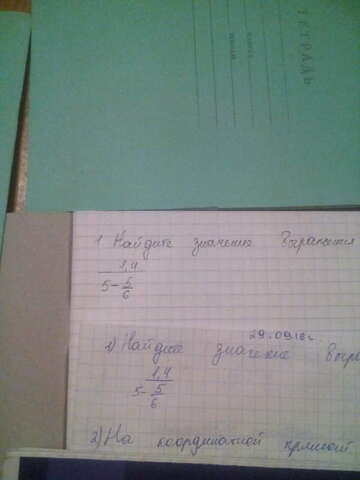 ТЕТРАДЬ
1 Найдите значение выражения
1,4
5-5
6
29.09.18г.
1) Найдите значение выра
1,4
5-5
6
2) На координатной прямой